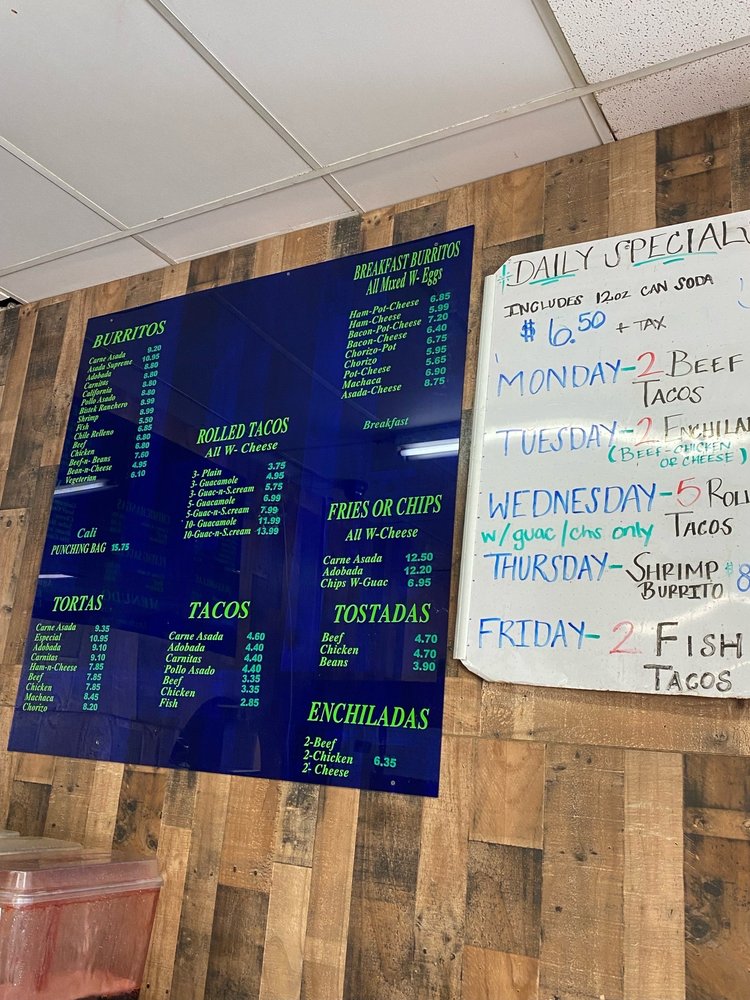 BURRITOS
Carne Asada 9.20
Asada Supreme 10.95
Adobada 8.80
Carnitas 8.80
California 8.80
Pollo Asado 8.80
Bistek Ranchero 8.99
Shrimp 8.99
Fish 5.50
Chile Relleno 6.85
Beef 6.80
Chicken 6.80
Beef-n- Beans 7.60
Bean-n-Cheese 4.95
Vegeterian 6.10
Cali
PUNCHING BAG 15.75
TORTAS
Carne Asada 9.35
Especial 10.95
Adobada 9.10
Carnitas 9.10
Ham-n-Cheese 7.85
Beef 7.85
Chicken 7.85
Machaca 8.45
Chorizo 8.20
ROLLED TACOS
All W- Cheese
3- Plain 3.75
3- Guacamole 4.95
3- Guac-n-S.cream 5.75
5- Guacamole 6.99
5-Guac-n-S.cream 7.99
10- Guacamole 11.99
10-Guac-n-S.cream 13.99
TACOS
Carne Asada 4.60
Adobada 4.40
Carnitas 4.40
Pollo Asado 4.40
Beef 3.35
Chicken 3.35
Fish 2.85
BREAKFAST BURRITOS
All Mixed W- Eggs
Ham-Pot-Cheese 6.85
Ham-Cheese 5.99
Bacon-Pot-Cheese 7.20
Bacon-Cheese 6.40
Chorizo-Pot 6.75
Chorizo 5.95
Pot-Cheese 5.65
Machaca 6.90
Asada-Cheese 8.75
Breakfast
FRIES OR CHIPS
All W-Cheese
Carne Asada 12.50
Adobada 12.20
Chips W-Guac 6.95
TOSTADAS
Beef 4.70
Chicken 4.70
Beans 3.90
ENCHILADAS
2-Beef
2-Chicken 6.35
2- Cheese
DAILY SPECIAL
INCLUDES 12oz CAN SODA
$6.50 + TAX
MONDAY-2 BEEF
TACOS
TUESDAY-2 ENCHILA
(BEEF-CHICKEN
OR CHEESE)
WEDNESDAY-5 ROLL
w/guac/chs only TACOS
THURSDAY-SHRIMP $8
BURRITO
FRIDAY-2 FISH
TACOS